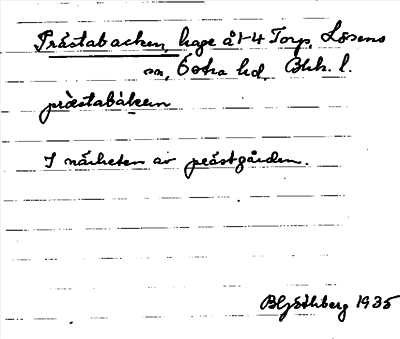 Prästabacken, hage å 1-4 Torp, Lösens
sn, Östra hd, Blek. l.
prästabàken
I närheten av prästgården.
B Hj Söthberg 1935